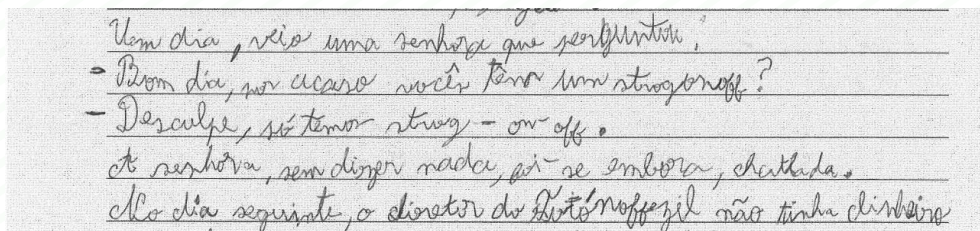 Um dia, veio uma senhora que perguntou:
- Bom dia, por acaso vocês têm um strogonoff?
- Desculpe, só temos strog - on-off.
A senhora, sem dizer nada, foi-se embora, chatiada.
No dia seguinte, o diretor do não tinha dinheiro